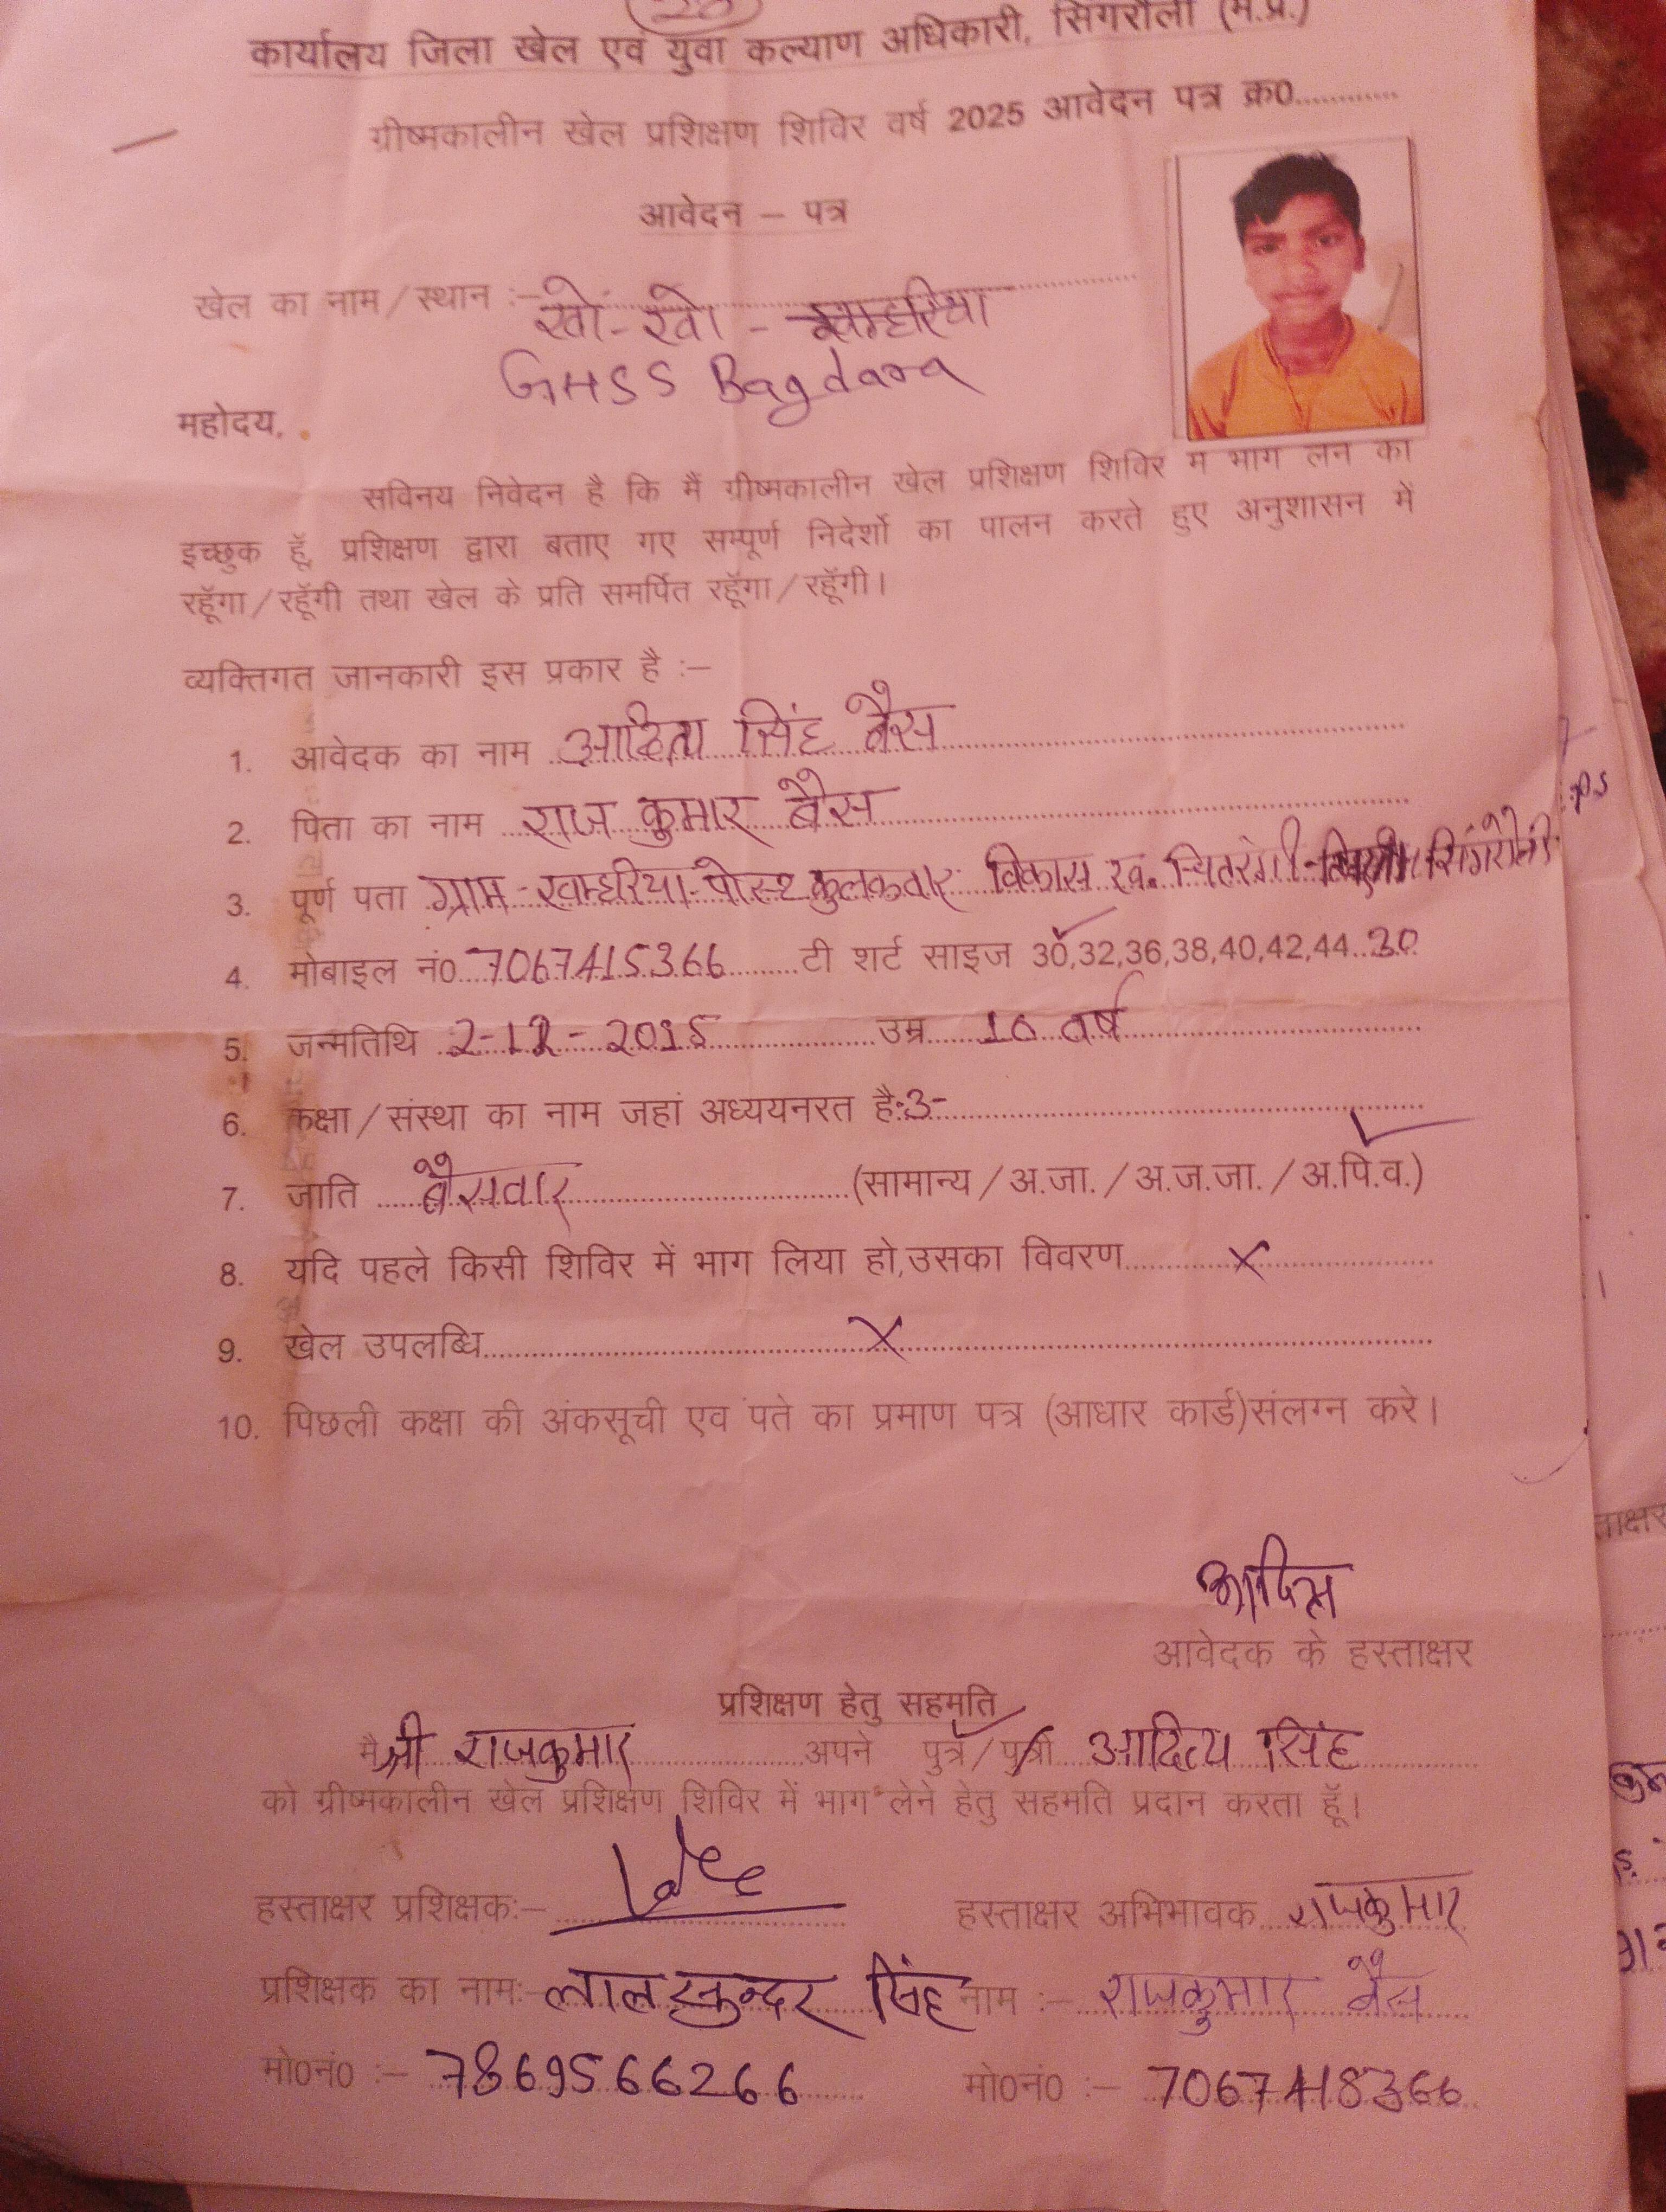 28
कार्यालय जिला खेल एवं युवा कल्याण अधिकारी, सिंगरौली (म.प्र.)
ग्रीष्मकालीन खेल प्रशिक्षण शिविर वर्ष 2025 आवेदन पत्र क्र0.............
आवेदन – पत्र
खेल का नाम/स्थान :– खो-खो - खम्हरिया
GHSS Bagdara
महोदय,
सविनय निवेदन है कि मैं ग्रीष्मकालीन खेल प्रशिक्षण शिविर में भाग लेने का
इच्छुक हूॅं, प्रशिक्षण द्वारा बताए गए सम्पूर्ण निदेर्शो का पालन करते हुए अनुशासन में
रहूॅंगा/रहूॅंगी तथा खेल के प्रति समर्पित रहूॅंगा/रहूॅंगी।
व्यक्तिगत जानकारी इस प्रकार है :–
1. आवेदक का नाम आदित्य सिंह बैस
2. पिता का नाम राज कुमार बैस
3. पूर्ण पता ग्राम - खम्हरिया - पोस्ट कुलकवार विकास ख. चितरंगी - सिंगरौली
4. मोबाइल नं0 7067415366 टी शर्ट साइज 30,32,36,38,40,42,44..30
5. जन्मतिथि 2-12-2015 उम्र 10 वर्ष
6. कक्षा/संस्था का नाम जहां अध्ययनरत है:-3-
7. जाति बैसवार (सामान्य/अ.जा./अ.ज.जा./अ.पि.व.)
8. यदि पहले किसी शिविर में भाग लिया हो,उसका विवरण X
9. खेल उपलब्धि X
10. पिछली कक्षा की अंकसूची एवं पते का प्रमाण पत्र (आधार कार्ड)संलग्न करे।
आदित्य
आवेदक के हस्ताक्षर
प्रशिक्षण हेतु सहमति
मै श्री राजकुमार अपने पुत्र/पुत्री आदित्य सिंह
को ग्रीष्मकालीन खेल प्रशिक्षण शिविर में भाग लेने हेतु सहमति प्रदान करता हूॅं।
हस्ताक्षर प्रशिक्षक:– हस्ताक्षर अभिभावक राजकुमार
प्रशिक्षक का नाम:– लाल सुन्दर सिंह नाम :– राजकुमार बैस
मो0नं0 :– 7869566266 मो0नं0 :– 7067418366